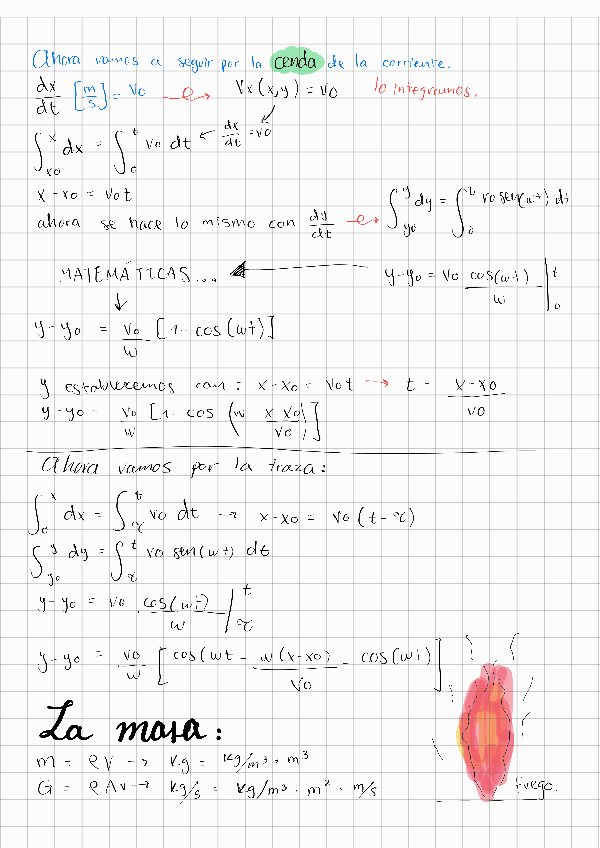 Ahora vamos a seguir por la cenda de la corriente.
dx/dt [m/s] = Vo → Vx(x,y) = Vo lo integramos.
∫_{xo}^{x} dx = ∫_{0}^{t} Vo dt ← dx/dt = Vo
x - xo = Vo t
∫_{yo}^{y} dy = ∫_{0}^{t} Vo sen(wt) dt
ahora se hace lo mismo con dy/dt →
MATEMÁTICAS... ← y-yo = Vo cos(wt)/w |_{0}^{t}
↓
y-yo = Vo/w [1- cos(wt)]
y establecemos con: x-xo = Vo t → t = x-xo/Vo
y-yo = Vo/w [1- cos (w x-xo/Vo)]
Ahora vamos por la traza:
∫_{o}^{x} dx = ∫_{τ}^{t} Vo dt → x-xo = Vo(t-τ)
∫_{yo}^{y} dy = ∫_{τ}^{t} Vo sen(wt) dt
y-yo = Vo cos(wt)/w |_{τ}^{t}
y-yo = Vo/w [cos(wt - w(x-xo)/Vo - cos(wt)]
La masa:
m = ρV → kg = kg/m³ · m³
G = ρAv → kg/s = kg/m³ · m² · m/s
fuego.